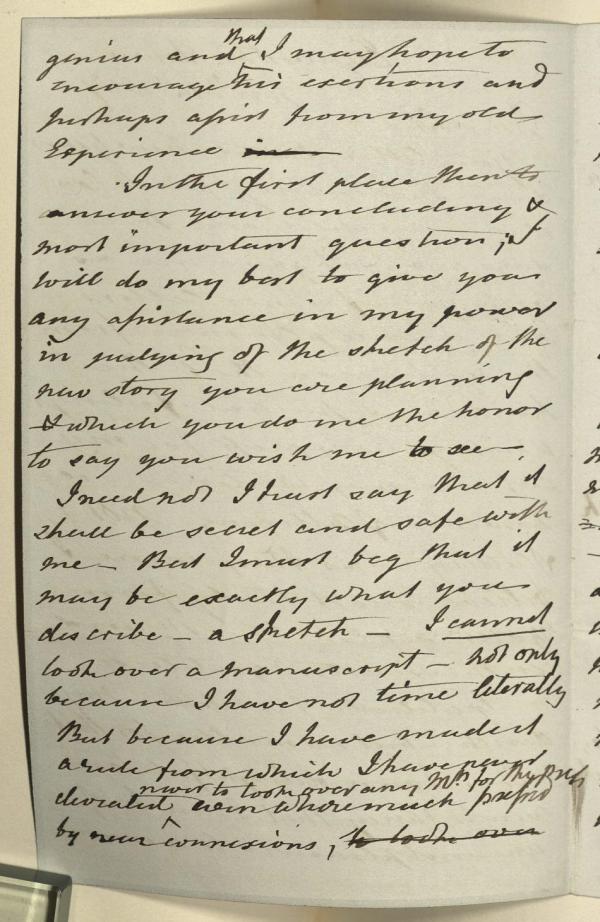 genius and that I may hope to
encourage his exertions and
perhaps assist from my old
Experience in
In the first place then to
answer your concluding &
most important question, I
will do my best to give you
any assistance in my power
in judging of the sketch of the
new story you are planning
& which you do me the honor
to say you wish me to see.
I need not I trust say that it
shall be secret and safe with
me – But I must beg that it
may be exactly what you
describe – a sketch – I cannot
look over a manuscript – not only
because I have not time literally
But because I have made it
a rule from which I have never
never to look over any MS. for the Press
deviated even where much pressed
by near connexions, to look over